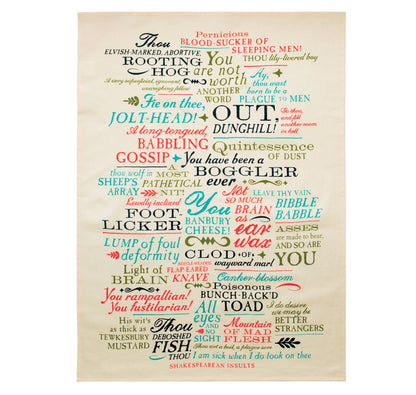 Pernicious
Thou BLOOD-SUCKER OF
ELVISH-MARKED, ABORTIVE, SLEEPING MEN!
ROOTING You THOU lily-livered boy
HOG are not
A very superficial, ignorant, worth Ay,
unweighing fellow ANOTHER thou wast
WORD born to be a
PLAGUE TO MEN
Fie on thee,
JOLT-HEAD! OUT,
DUNGHILL!
Go thou,
and fill
another room
in hell
A long-tongued,
BABBLING Quintessence
GOSSIP OF DUST
You have been a
thou wolf in A BOGGLER
SHEEP'S MOST ever
ARRAY PATHETICAL
NIT! Not LEAVE THY VAIN
Lewdly inclined You SO MUCH BIBBLE
FOOT- BANBURY BRAIN BABBLE
LICKER CHEESE! as
ear ASSES
wax are made to bear,
LUMP of foul AND SO ARE
deformity CLOD OF YOU
wayward marl
Light of BEETLE-HEADED,
BRAIN FLAP-EARED
KNAVE Canker-blossom
Poisonous
You rampallian! BUNCH-BACK'D
You fustilarian! All TOAD I do desire
eyes we may be
His wit's Thou AND Mountain BETTER
as thick as DEBOSHED NO OF MAD STRANGERS
TEWKESBURY FISH, SIGHT FLESH
MUSTARD THOU Thou art a boil, a plague sore
I am sick when I do look on thee
SHAKESPEAREAN INSULTS